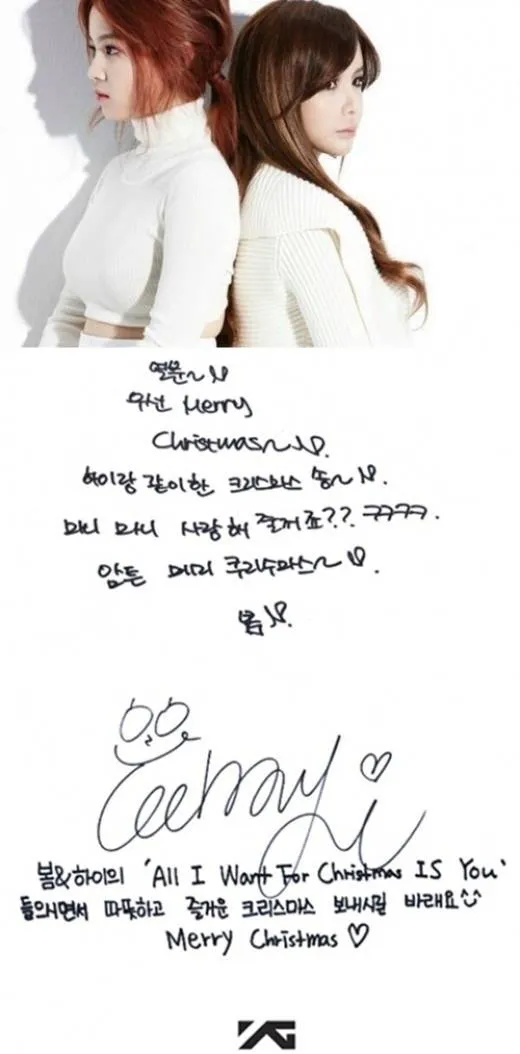 열분~♡
우선 Merry
Christmas~♡.
하이랑 같이한 크리스마스 송~♡.
마니 마니 사랑해 줄거죠?? ㅋㅋㅋㅋ.
암튼 메리 쿠리수마스~♡.
봄♡.
Leehay i ♡
봄&하이의 'All I Want For Christmas IS You'
들으시면서 따뜻하고 즐거운 크리스마스 보내시길 바래요^^
Merry Christmas ♡
YG